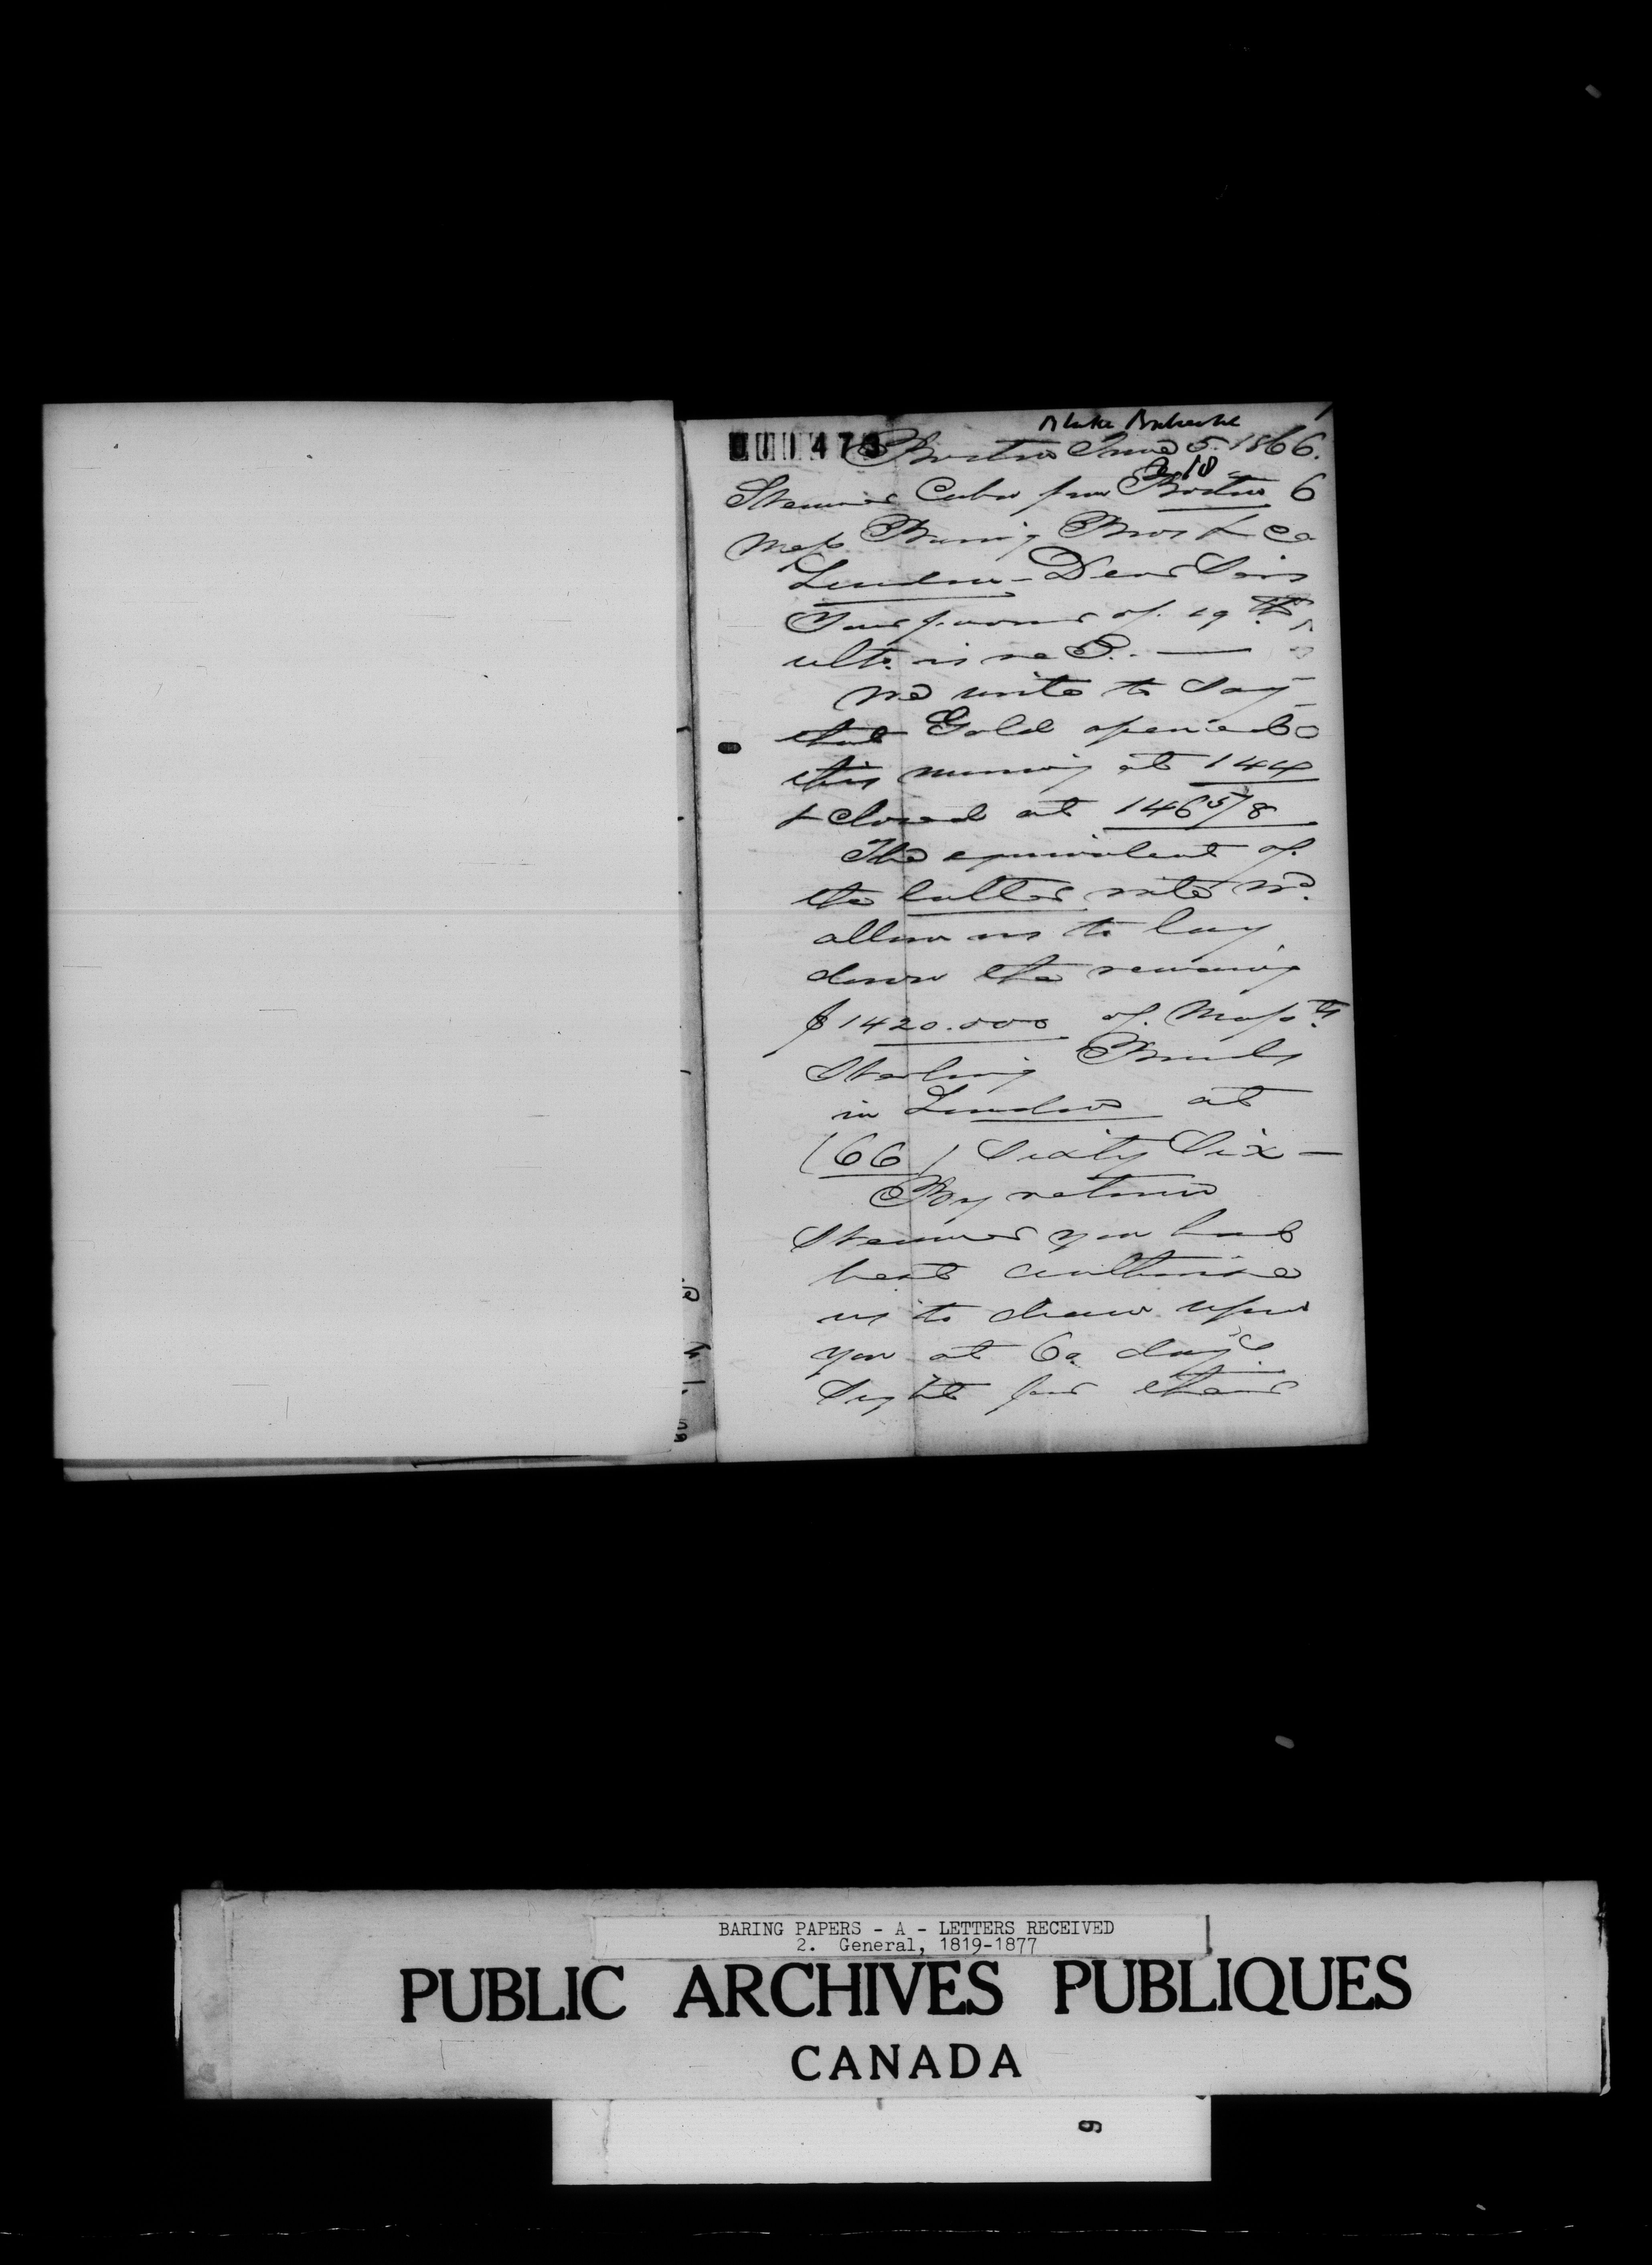 001473
Boston June 5. 1866.
18
Steamer Cuba from Boston 6
Mess Baring Bros & Co
London - Dear Sirs
Your favour of 19th
ulto. is recd. —
We write to say
that Gold opened
this morning at 144
& closed at 146 5/8
The equivalent of
the latter rate wd.
allow us to lay
down the remaing
$1420.000 of Massts
Sterling Bonds
in London at
(66) Sixty Six —
By return
Steamer you had
best authorise
us to draw upon
you at 60 days
Sight for these
BARING PAPERS - A - LETTERS RECEIVED
2. General, 1819-1877
PUBLIC ARCHIVES PUBLIQUES
CANADA
9